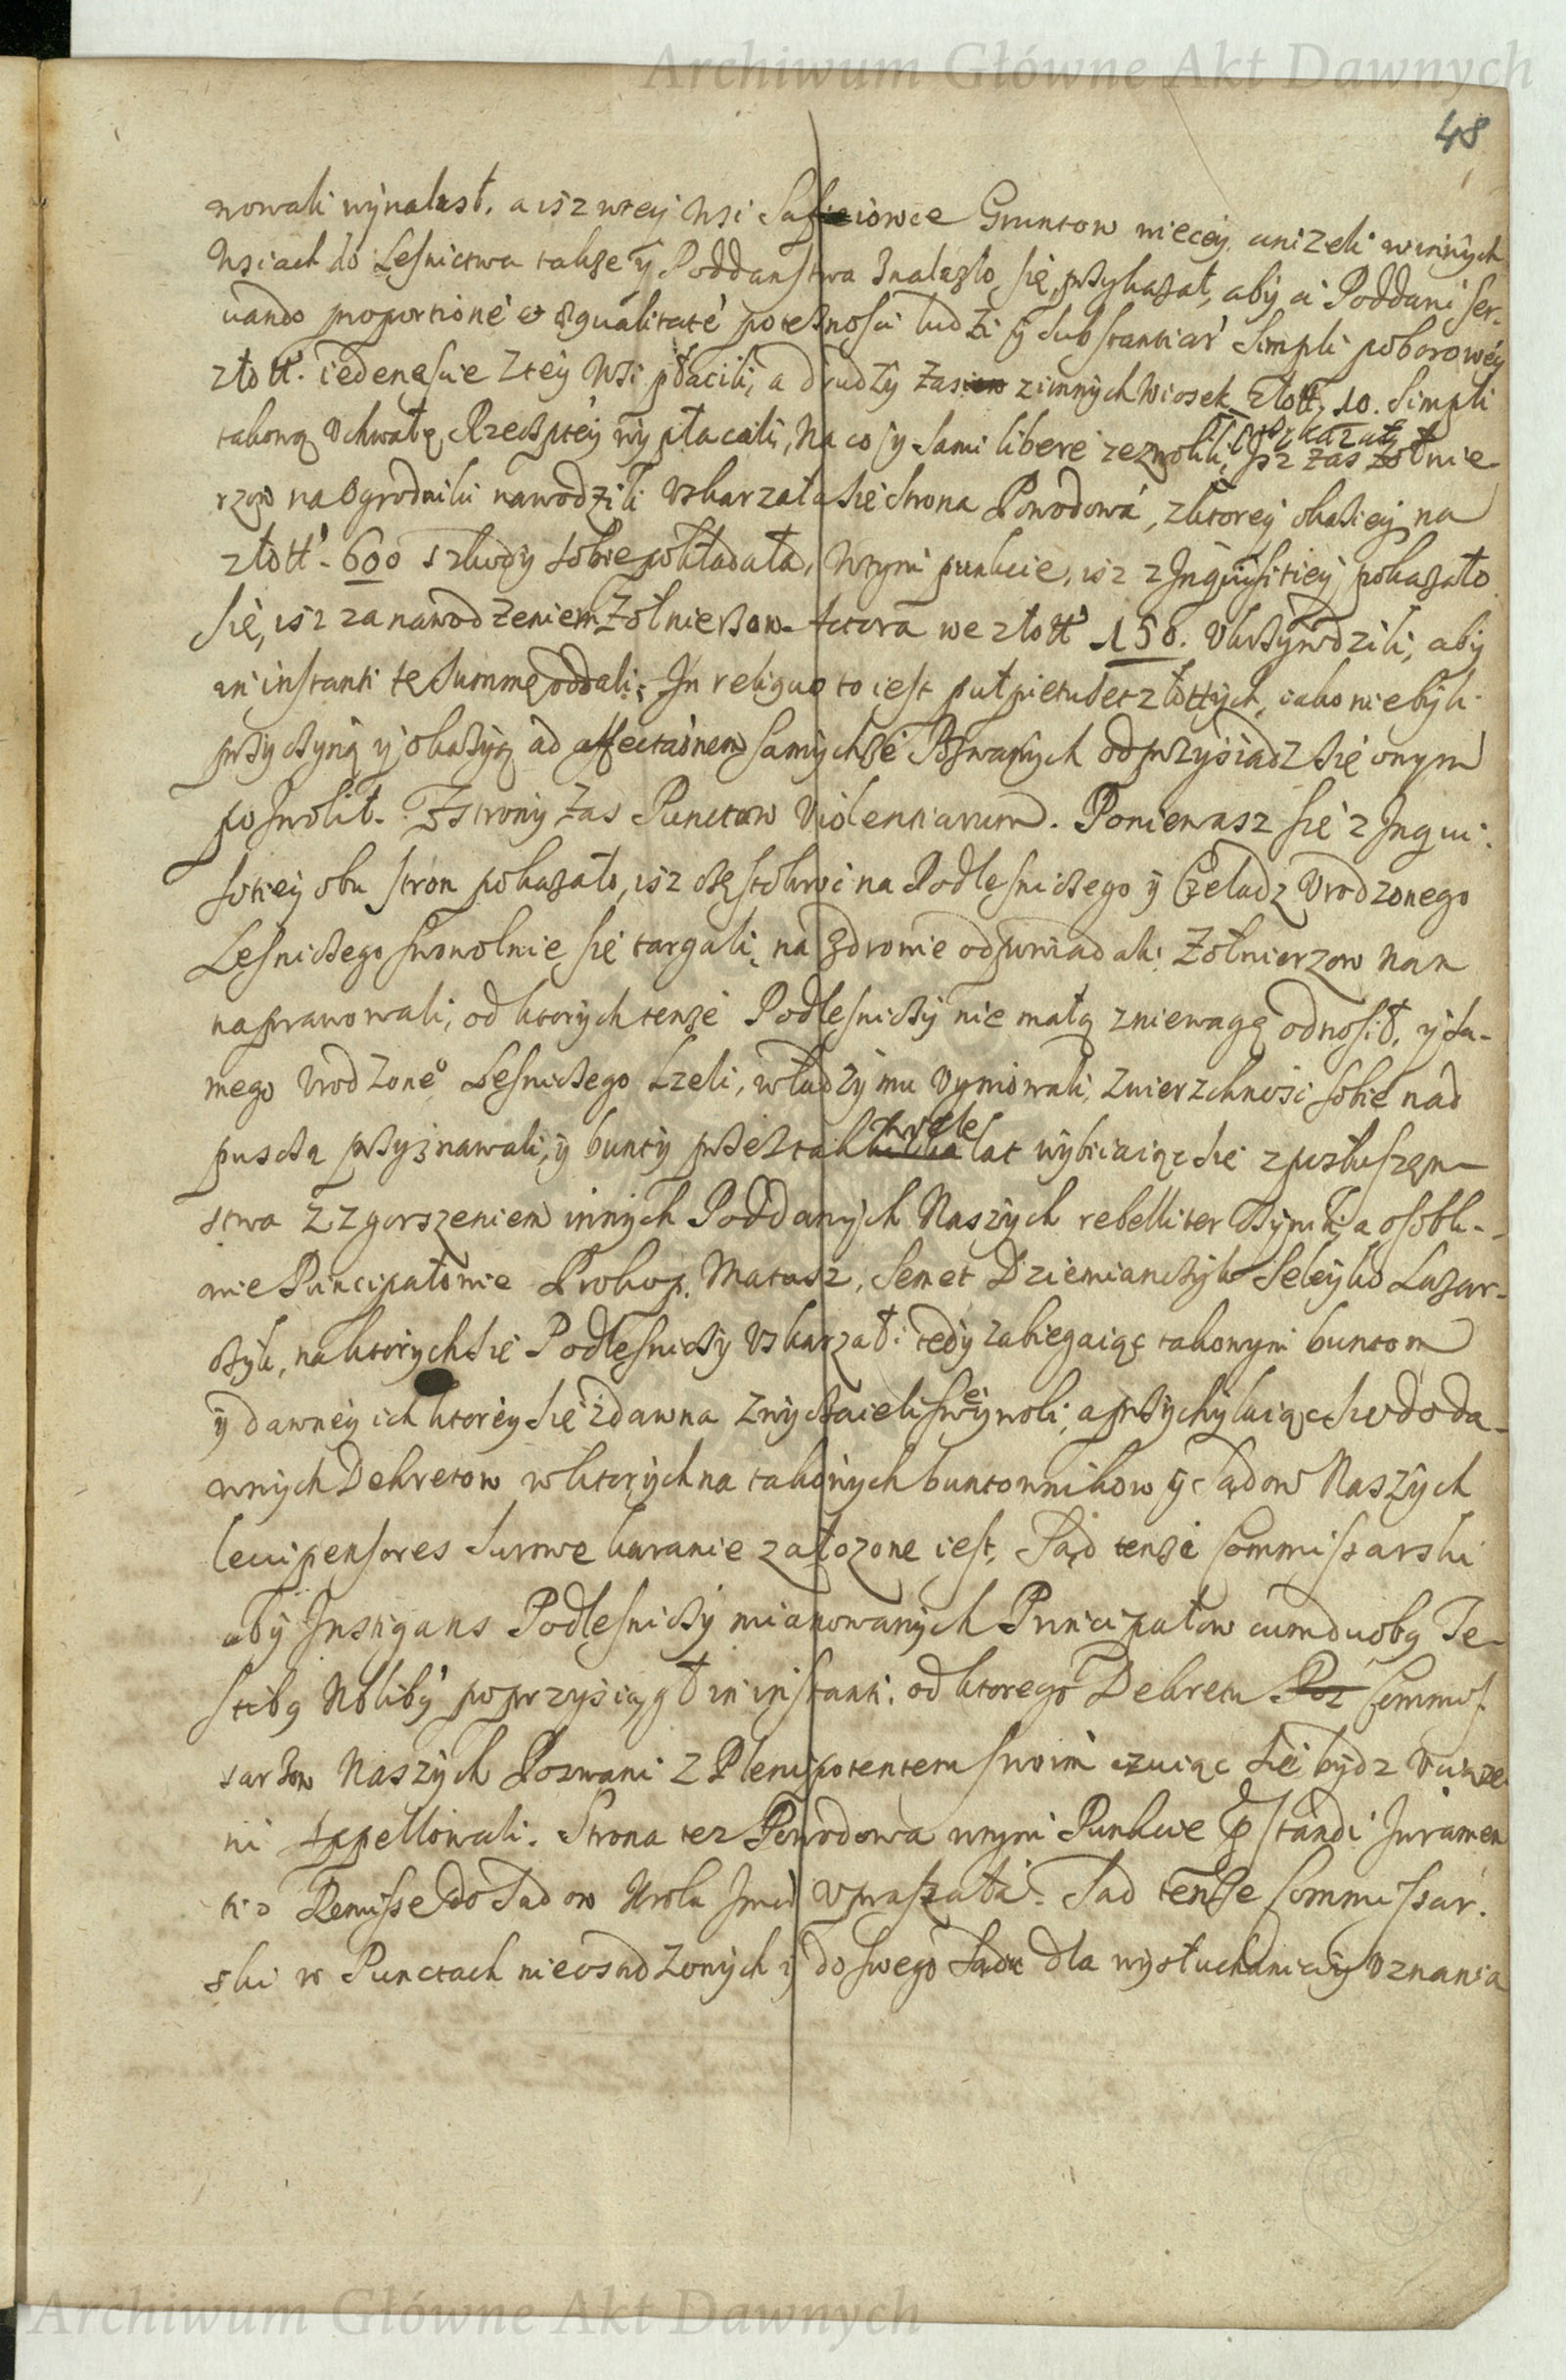 Archiwum Główne Akt Dawnych
48
nowali wynalasł, a isz wtey wsi Gruntow wiecey anizeli winnych
wsiach do Lesnictwa takze y Poddanstwa znalazlo się, przykazał, aby ci Poddani ser-
vando proportione et equalitate potesznosci ludzi y substantiar simpli poborowey
złott. iedenascie ztey wsi płacili, a drudzy zas zinnych wiosek złott. 10. simpli
takową Uchwałą Rzeczptey wypłacali, na co y sami libere zezwolili. isz zas zołnie
rzow na Ogrodniki nawodzili Uskarzała się Strona Powodowa, zktorey okaziey na
złott. 600 szkody sobie pokładała, wtym punkcie, isz z Inquisitiey pokazało
się, isz za nawodzeniem Zołnierzow we złott 150. Ukrzywdzili, aby
in instanti te summę oddali. In reliquo to iest pułpietaset złottych, iako niebyli
przyczyną y okazyą ad affectationem samychze Pozwanych odprzysiadz się onym
pozwolił. Zstrony zas Punctow Violentiarum. Poniewasz się z Inqui-
sitiey obu stron pokazało, isz częstokroc na Podlesniczego y Czeladz Urodzonego
Lesniczego swowolnie się targali, na zdrowie odpowiadali, Zołnierzow nan
naprawowali, od ktorych tenze Podlesniczy nie małą zniewagę odnosił, y sa-
mego Urodzone° Lesniczego Lzeli, władzy mu Uymowali, zwierzchnosci sobie nad
puszczą przyznawali, y bunty przez tak wiele lat wybiiaiąc się z posłuszen-
stwa z zgorszeniem innych Poddanych Naszych rebelliter czynili, a osobli-
wie Principałowie Prokop, Matusz, Semet Dziemianczyk Lazar-
czyk, na ktorych się Podlesniczy Uskarzał: tedy zabiegaiąc takowym buntom
y dawney ich ktorey się zdawna zwyczaieli swey woli, a przychylaiąc się do da-
wnych Dekretow w ktorych na takowych buntownikow y sądow Naszych
levipensores surowe karanie załozone iest, Sąd tenze Commissarski
aby Instigans Podlesniczy mianowanych Principałow cum duobq Te-
stibq Nblibq poprzysiągł in instanti, od ktorego Dekretu Commis-
sarzow Naszych Pozwani z Plenipotentem swoim czuiąc się bydz Uciąze
ni Appellowali. Strona tez Powodowa wtym Punkcie standi Juramen
ti o Remisse do Sadow Krola Jmci Upraszała. Sad tenze Commissar-
ski w Punctach nieosadzonych y do swego Sądu dla wysłuchania y Uznania
Archiwum Główne Akt Dawnych